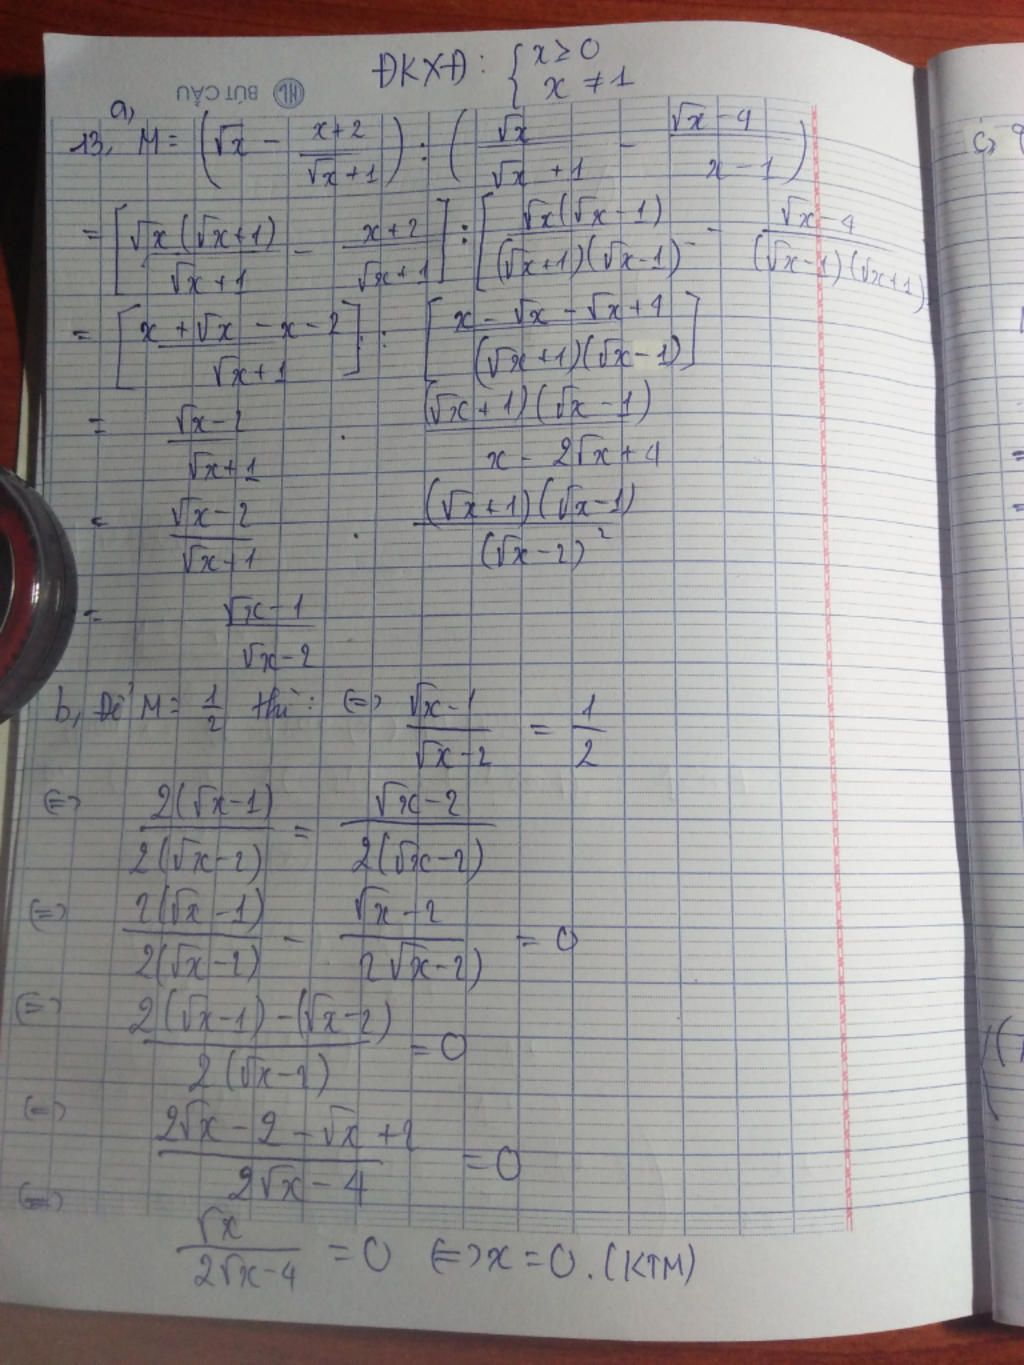 ĐKXĐ: { x ≥ 0
x ≠ 1
BÚT CẦU
a,
13, M = (√x - (x+2)/(√x+1)) : (√x/(√x+1) - (√x-4)/(x-1))
= [√x(√x+1)/(√x+1) - (x+2)/(√x+1)] : [√x(√x-1)/((√x+1)(√x-1)) - (√x-4)/((√x-1)(√x+1))
= [(x+√x-x-2)/(√x+1)] : [(x-√x-√x+4)/((√x+1)(√x-1))]
= (√x-2)/(√x+1) . ((√x+1)(√x-1))/(x-2√x+4)
= (√x-2)/(√x+1) . ((√x+1)(√x-1))/(√x-2)²
= (√x-1)/(√x-2)
b, Để M = 1/2 thì: <=> (√x-1)/(√x-2) = 1/2
<=> 2(√x-1)/(2(√x-2)) = (√x-2)/(2(√x-2))
<=> 2(√x-1)/(2(√x-2)) - (√x-2)/(2√x-2)) = 0
<=> (2(√x-1)-(√x-2))/(2(√x-2)) = 0
<=> (2√x-2-√x+2)/(2√x-4) = 0
<=> √x/(2√x-4) = 0 <=> x = 0. (KTM)
c,